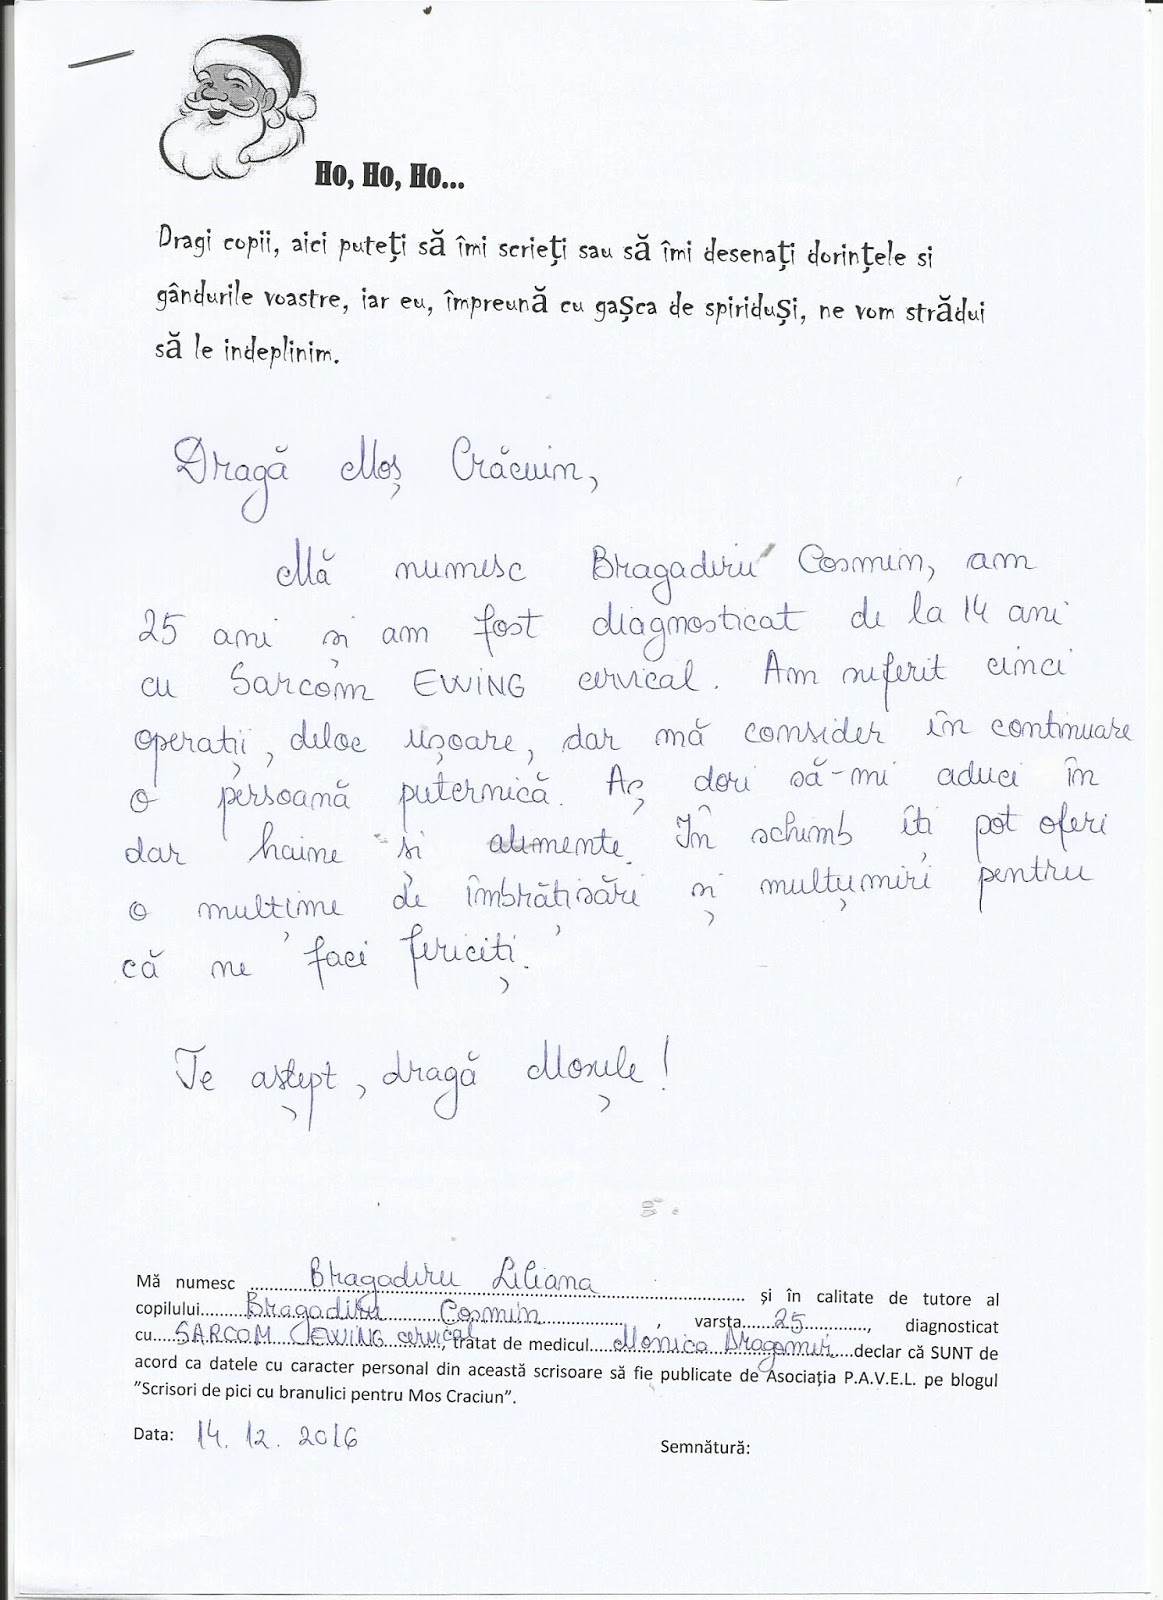 Ho, Ho, Ho...
Dragi copii, aici puteți să îmi scrieți sau să îmi desenați dorințele si
gândurile voastre, iar eu, împreună cu gașca de spiriduși, ne vom strădui
să le indeplinim.
Dragă Moș Crăciun,
Mă numesc Bragadiru Cosmin, am
25 ani și am fost diagnosticat de la 14 ani
cu Sarcom EWING cervical. Am suferit cinci
operații, deloc ușoare, dar mă consider în continuare
o persoană puternică. Aș dori să-mi aduci în
dar haine și alimente. În schimb îți pot oferi
o mulțime de îmbrățișări și mulțumiri pentru
că ne faci fericiți.
Te aștept, dragă Moșule!
Mă numesc Bragadiru Liliana și în calitate de tutore al
copilului Bragadiru Cosmin, varsta 25, diagnosticat
cu SARCOM EWING cervical, tratat de medicul Monica Dragomir declar că SUNT de
acord ca datele cu caracter personal din această scrisoare să fie publicate de Asociația P.A.V.E.L. pe blogul
"Scrisori de pici cu branulici pentru Mos Craciun".
Data: 14. 12. 2016
Semnătură: